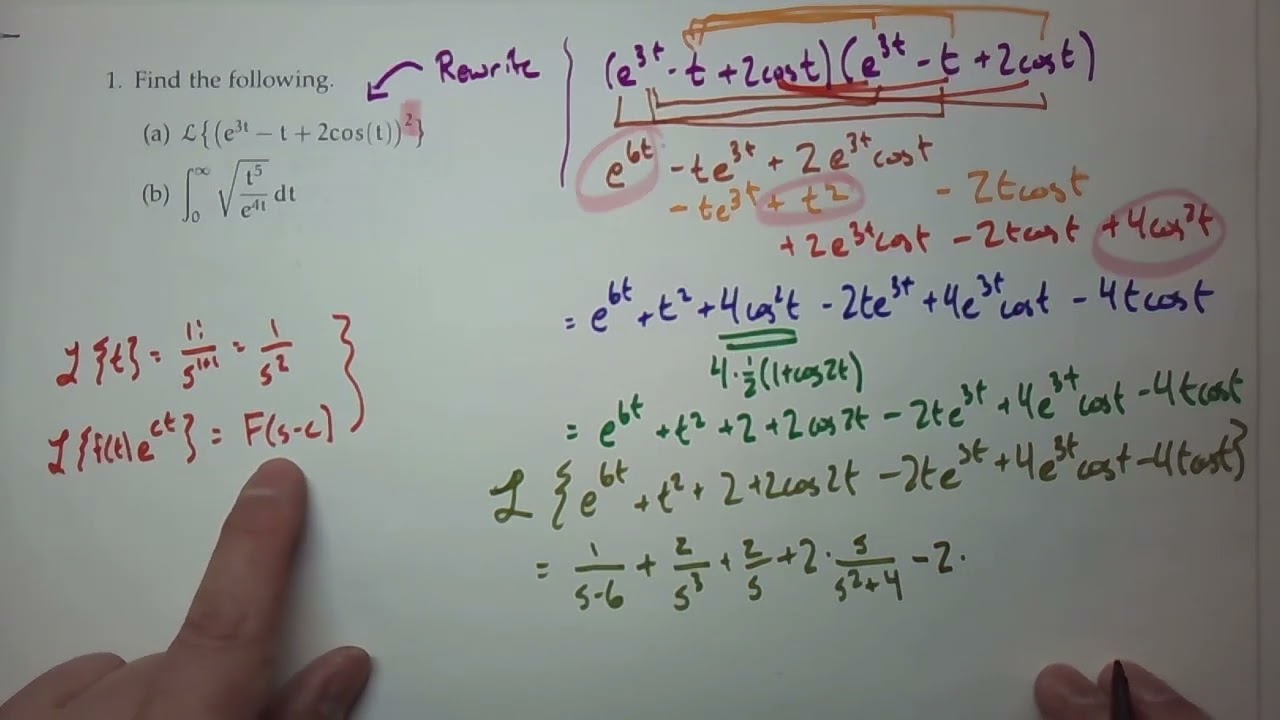 1. Find the following.
(a) ℒ{(e^{3t} − t + 2cos(t))^2}
(b) ∫_0^∞ √(t^5/e^{4t}) dt
Rewrite
(e^{3t} - t + 2cost)(e^{3t} - t + 2cost)
e^{6t} - te^{3t} + 2e^{3t}cost
- te^{3t} + t^2 - 2tcost
+ 2e^{3t}cost - 2tcost + 4cos^2t
= e^{6t} + t^2 + 4cos^2t - 2te^{3t} + 4e^{3t}cost - 4tcost
4·½(1+cos2t)
= e^{6t} + t^2 + 2 + 2cos2t - 2te^{3t} + 4e^{3t}cost - 4tcost
ℒ{e^{6t} + t^2 + 2 + 2cos2t - 2te^{3t} + 4e^{3t}cost - 4tcost}
= 1/(s-6) + 2/s^3 + 2/s + 2·s/(s^2+4) - 2·
ℒ{t} = 1!/s^{1+1} = 1/s^2
ℒ{f(t)e^{ct}} = F(s-c)